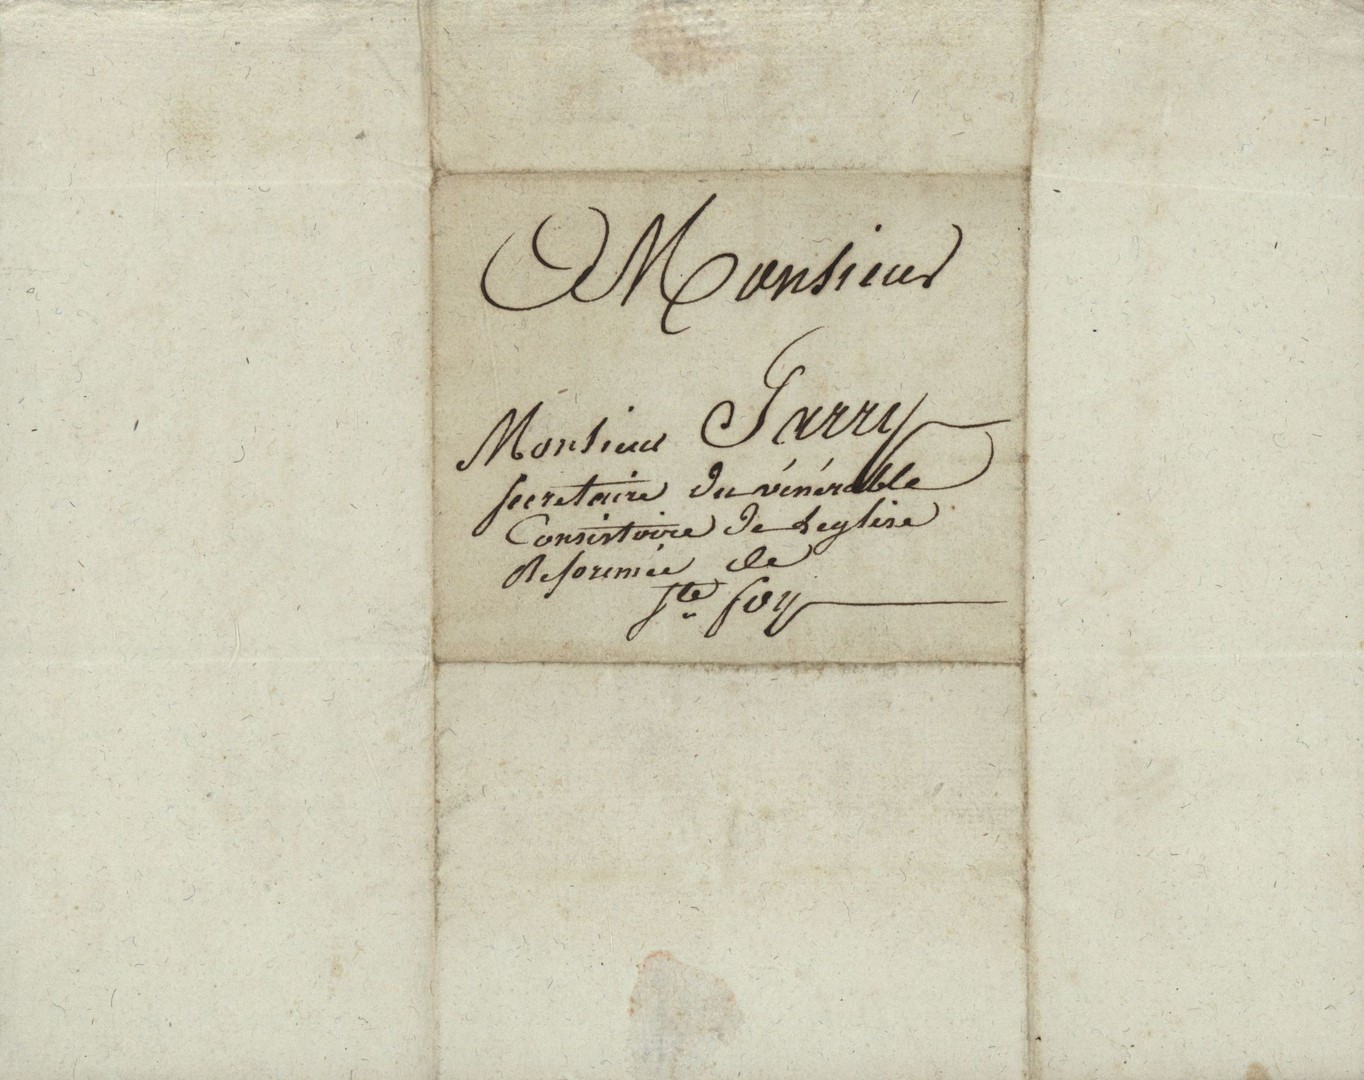 Monsieur
Monsieur Jarry
secretaire du vénérable
Consistoire de Leglise
Reformée de
Ste foy